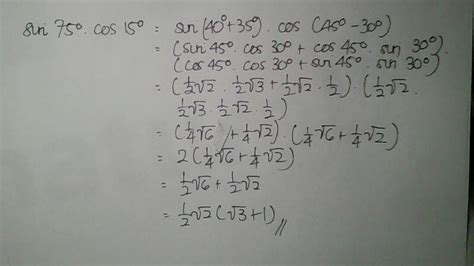 sin 75°. cos 15° = sin (40°+35°). cos (45°-30°)
= (sin 45°. cos 30° + cos 45°. sin 30°).
(cos 45°. cos 30° + sin 45°. sin 30°)
= (½√2 . ½√3 + ½√2 . ½). (½√2.
½√3. ½√2. ½)
= (¼√6 + ¼√2). (¼√6 + ¼√2)
= 2 (¼√6 + ¼√2)
= ½√6 + ½√2
= ½√2 (√3+1) //